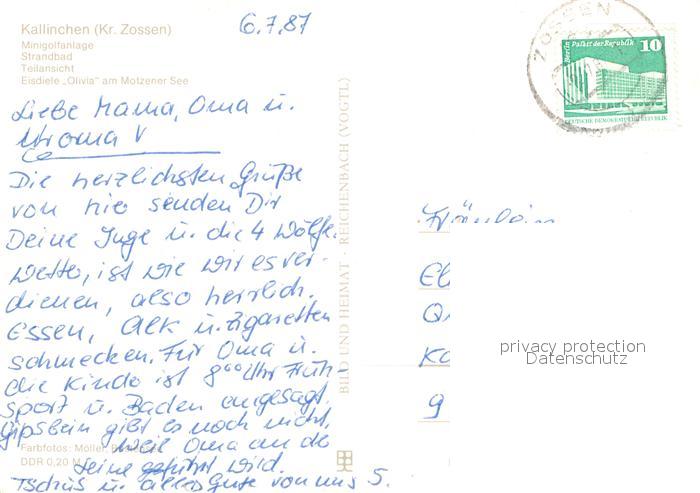 Kallinchen (Kr. Zossen)
Minigolfanlage
Strandbad
Teilansicht
Eisdiele „Olivia" am Motzener See
6.7.87
Liebe Mama, Oma u.
Uroma V
Die herzlichsten Grüße
von hie senden Dir
Deine Inge u. die 4 Wölfe.
Wetter ist wie wir es ver-
dienen, also herrlich.
Essen, Alk u. Zigaretten
schmecken. Für Oma u.
die Kinde ist 8⁰⁰ Uhr Früh-
sport u. Baden angesagt.
Gipsbein gibt es noch nicht,
weil Oma an de
Leine geführt wird.
Tschüß u. alles Gute von uns 5.
Farbfotos: Möller,
DDR 0,20 M
BILD UND HEIMAT · REICHENBACH (VOGTL)
ZOSSEN
Berlin Palast der Republik 10
DEUTSCHE DEMOKRATISCHE REPUBLIK
Fräulein
El
Q
Ka
9
privacy protection
Datenschutz